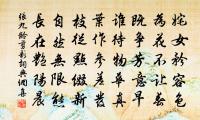 姹女矜容色
為花不讓春
既爭芳意早
誰待物華真
葉作參差發
枝從點綴新
自然無限態
長在艷陽晨
張九齡剪彩詞典網